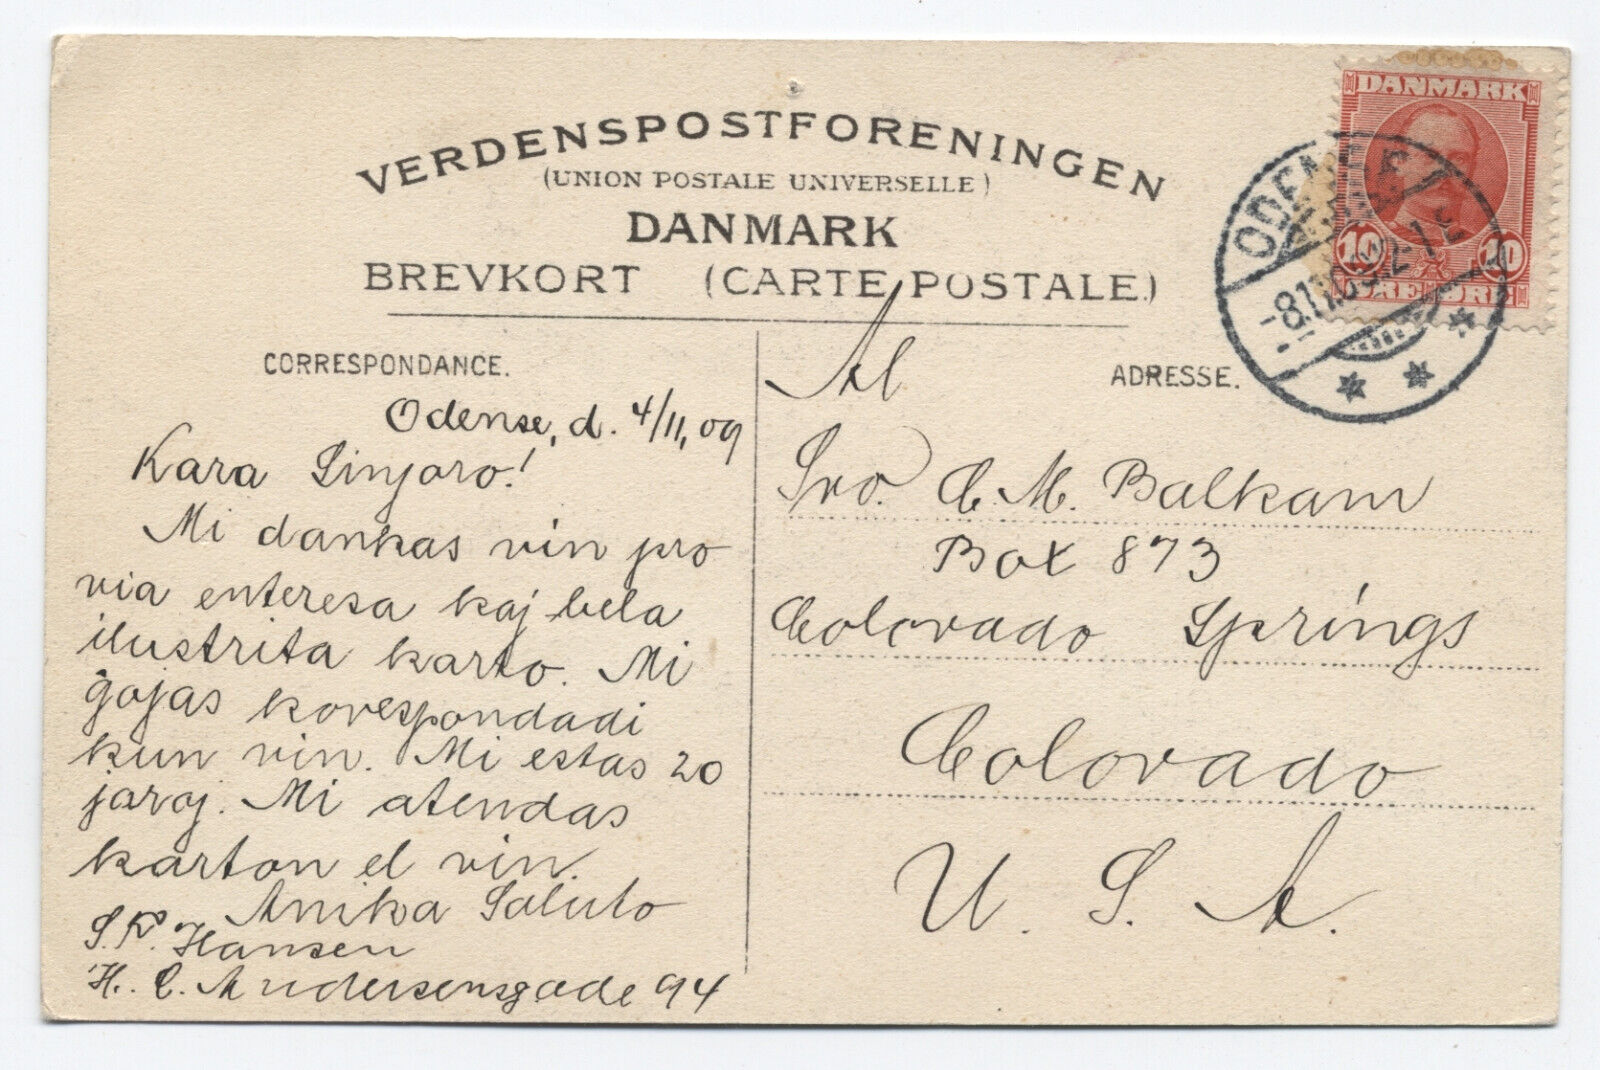 VERDENSPOSTFORENINGEN
(UNION POSTALE UNIVERSELLE)
DANMARK
BREVKORT (CARTE POSTALE.)
CORRESPONDANCE.
Odense, d. 4/11, 09
Kara Sinjoro!
Mi dankas vin pro
via enteresa kaj bela
ilustrita karto. Mi
ĝojas korespondadi
kun vin. Mi estas 20
jaroj. Mi atendas
karton el vin.
Amika Saluto
S. P. Hansen
H. C. Andersensgade 94
ADRESSE.
Al
Sro. C. M. Balkam
Box 873
Colorado Springs
Colorado
U. S. A.
DANMARK
10 10
ØRE ØRE
ODENSE